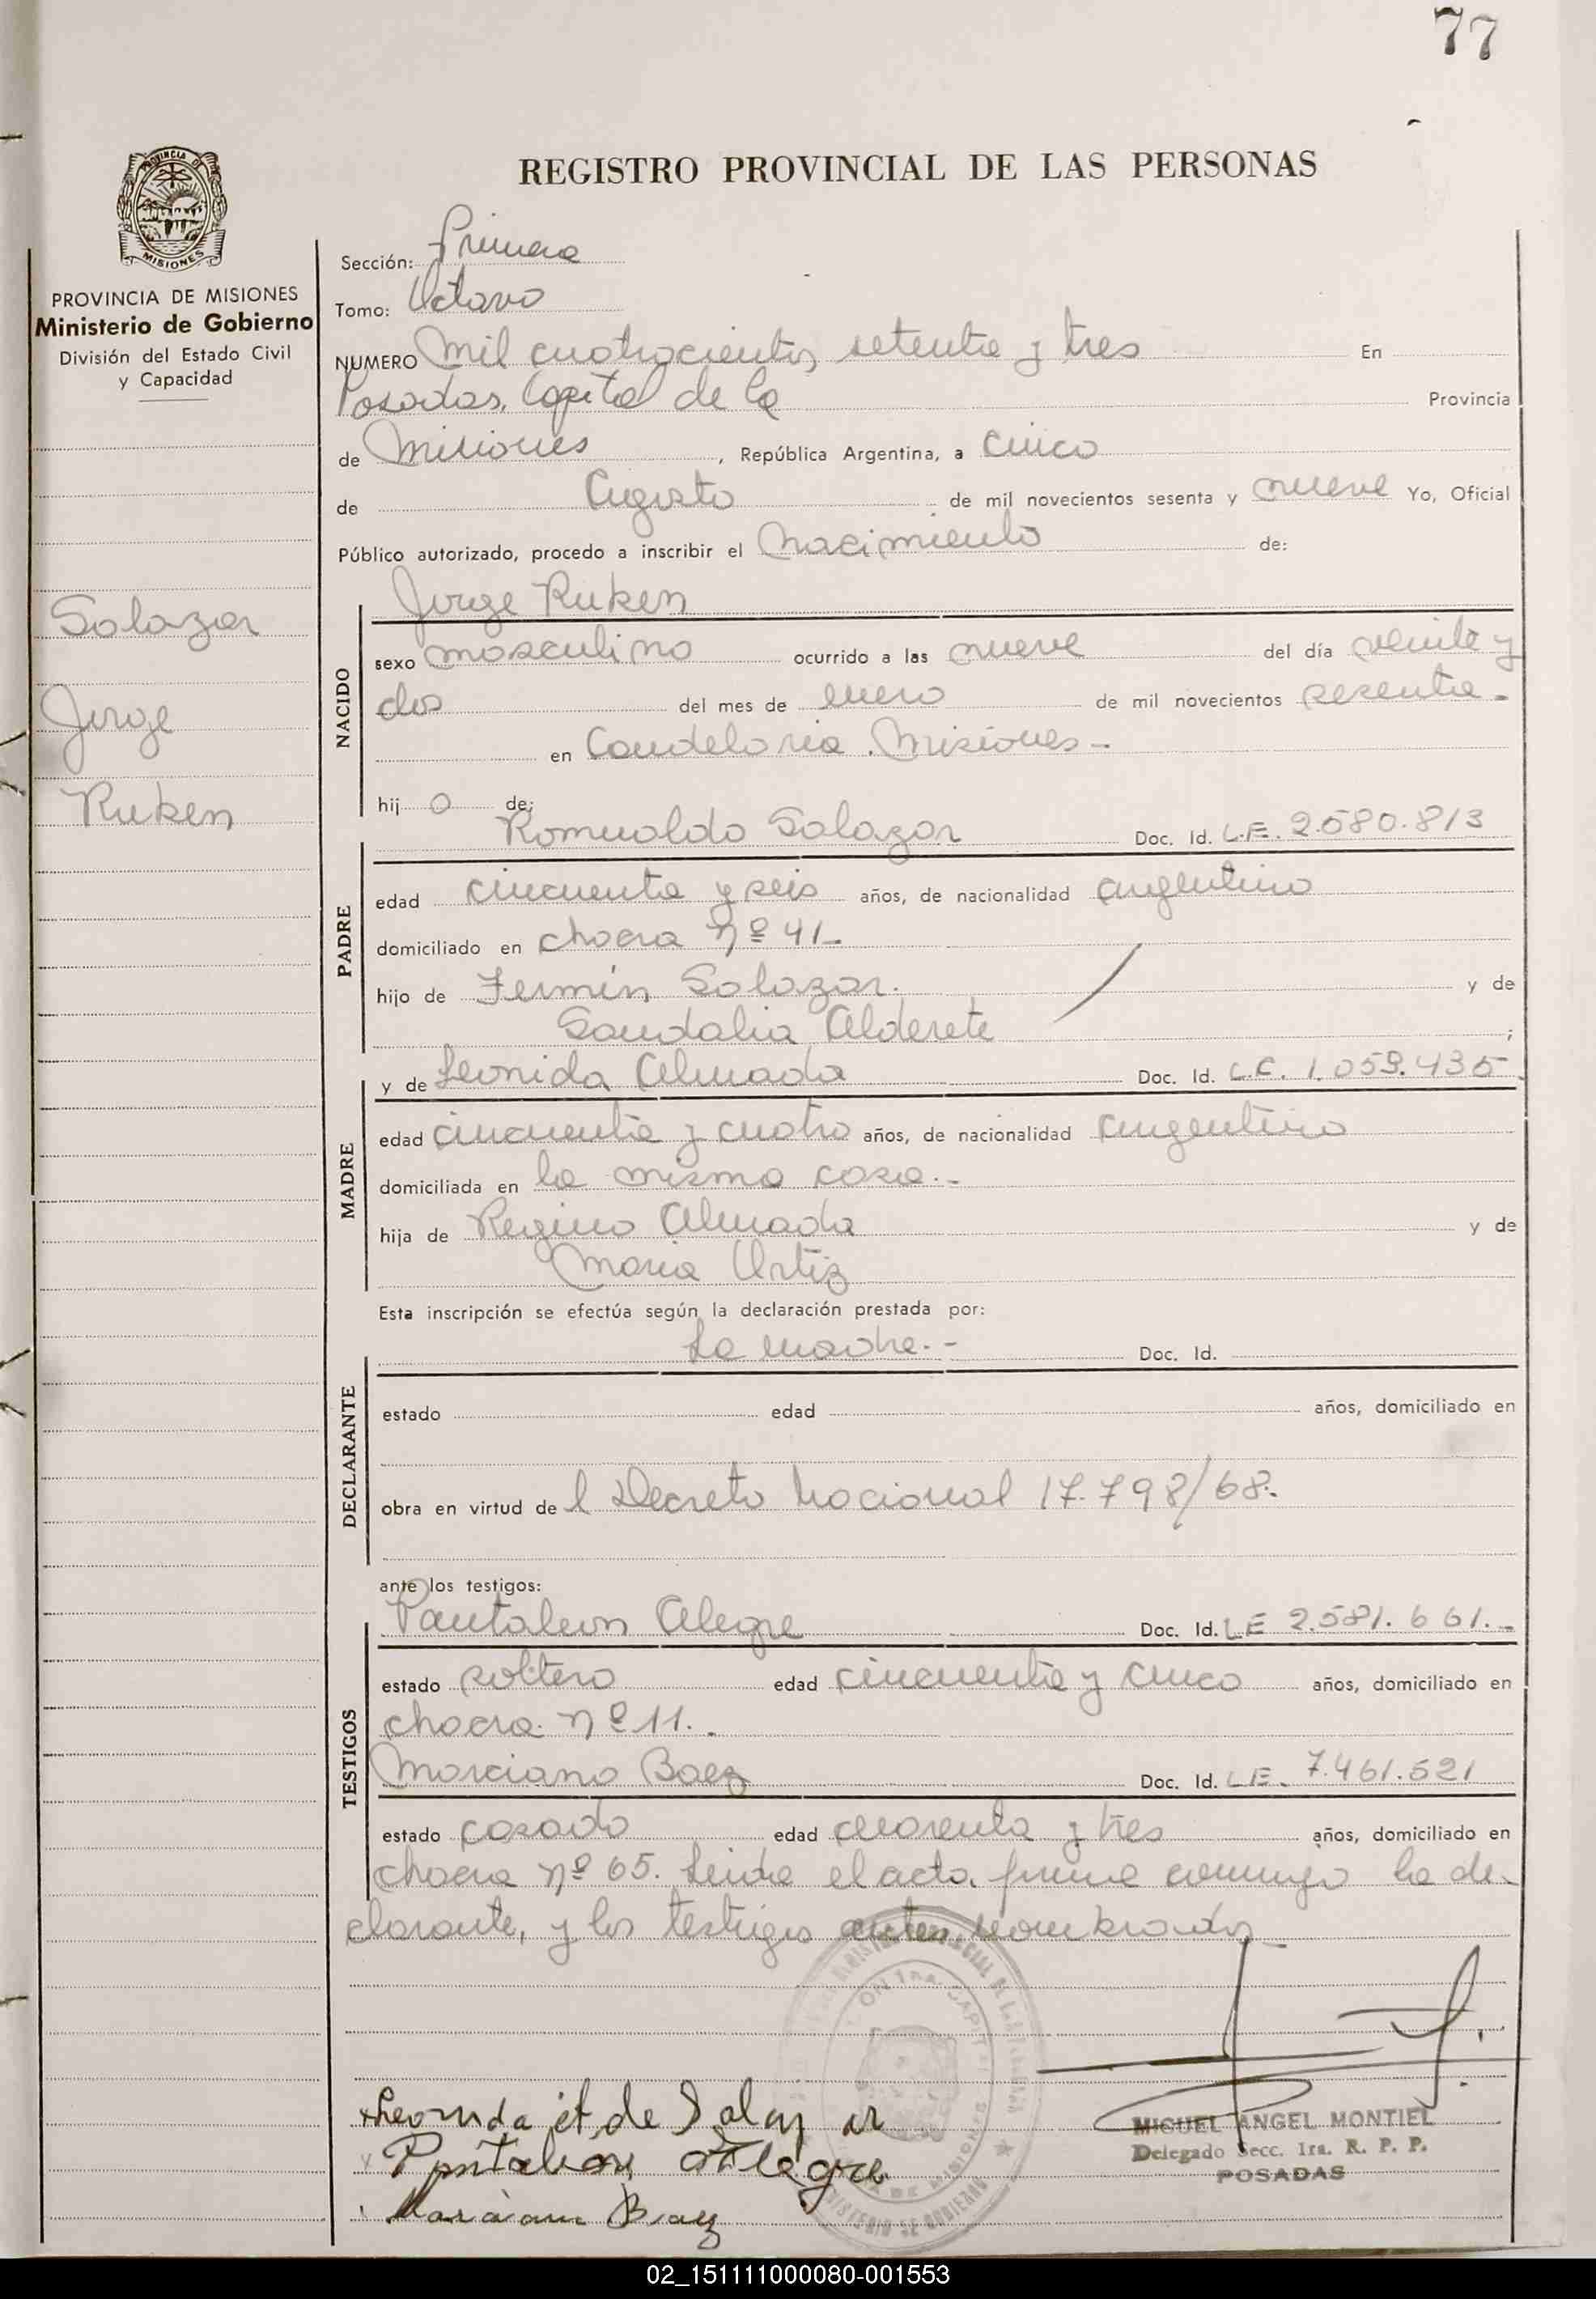 77
REGISTRO PROVINCIAL DE LAS PERSONAS
PROVINCIA DE
MISIONES
PROVINCIA DE MISIONES
Ministerio de Gobierno
División del Estado Civil
y Capacidad
Salazar
Jorge
Ruben
Sección: Primera
Tomo: Octavo
NUMERO Mil cuatrocientos setenta y tres En
Posadas, Capital de la Provincia
de Misiones, República Argentina, a cinco
de Agosto de mil novecientos sesenta y nueve Yo, Oficial
Público autorizado, procedo a inscribir el Nacimiento de:
Jorge Ruben
NACIDO
sexo masculino ocurrido a las nueve del día veinte y
dos del mes de enero de mil novecientos sesenta.-
en Candelaria. Misiones-
hij o de:
Romualdo Salazar Doc. Id. L.E. 2.580.813
PADRE
edad cincuenta y seis años, de nacionalidad argentino
domiciliado en chacra nº 41-
hijo de Fermín Salazar. y de
Sandalia Alderete ;
y de Leonida Almada Doc. Id. L.C. 1.059.435
MADRE
edad cincuenta y cuatro años, de nacionalidad argentina
domiciliada en la misma casa.-
hija de Regino Almada y de
Maria Ortiz
Esta inscripción se efectúa según la declaración prestada por:
La madre.- Doc. Id.
DECLARANTE
estado edad años, domiciliado en
obra en virtud de l Decreto Nacional 17.798/68.
ante los testigos:
Pantaleon Alegre Doc. Id. LE 2.581.661.-
TESTIGOS
estado soltero edad cincuenta y cinco años, domiciliado en
chacra nº 11..
Marciano Baez Doc. Id. L.E. 7.461.521
estado casado edad cuarenta y tres años, domiciliado en
chacra nº 65. Leída el acta, firma conmigo la de-
clarante, y los testigos antes nombrados
Leonida A de Salazar
Pantaleón Alegre
Marciano Baez
MIGUEL ANGEL MONTIEL
Delegado Secc. 1ra. R. P. P.
POSADAS
02_151111000080-001553